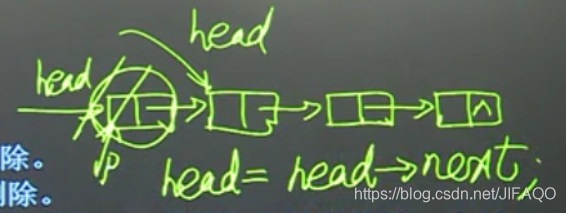 head
head
p
除。
head = head→next;
删除。
https://blog.csdn.net/JIFAQO